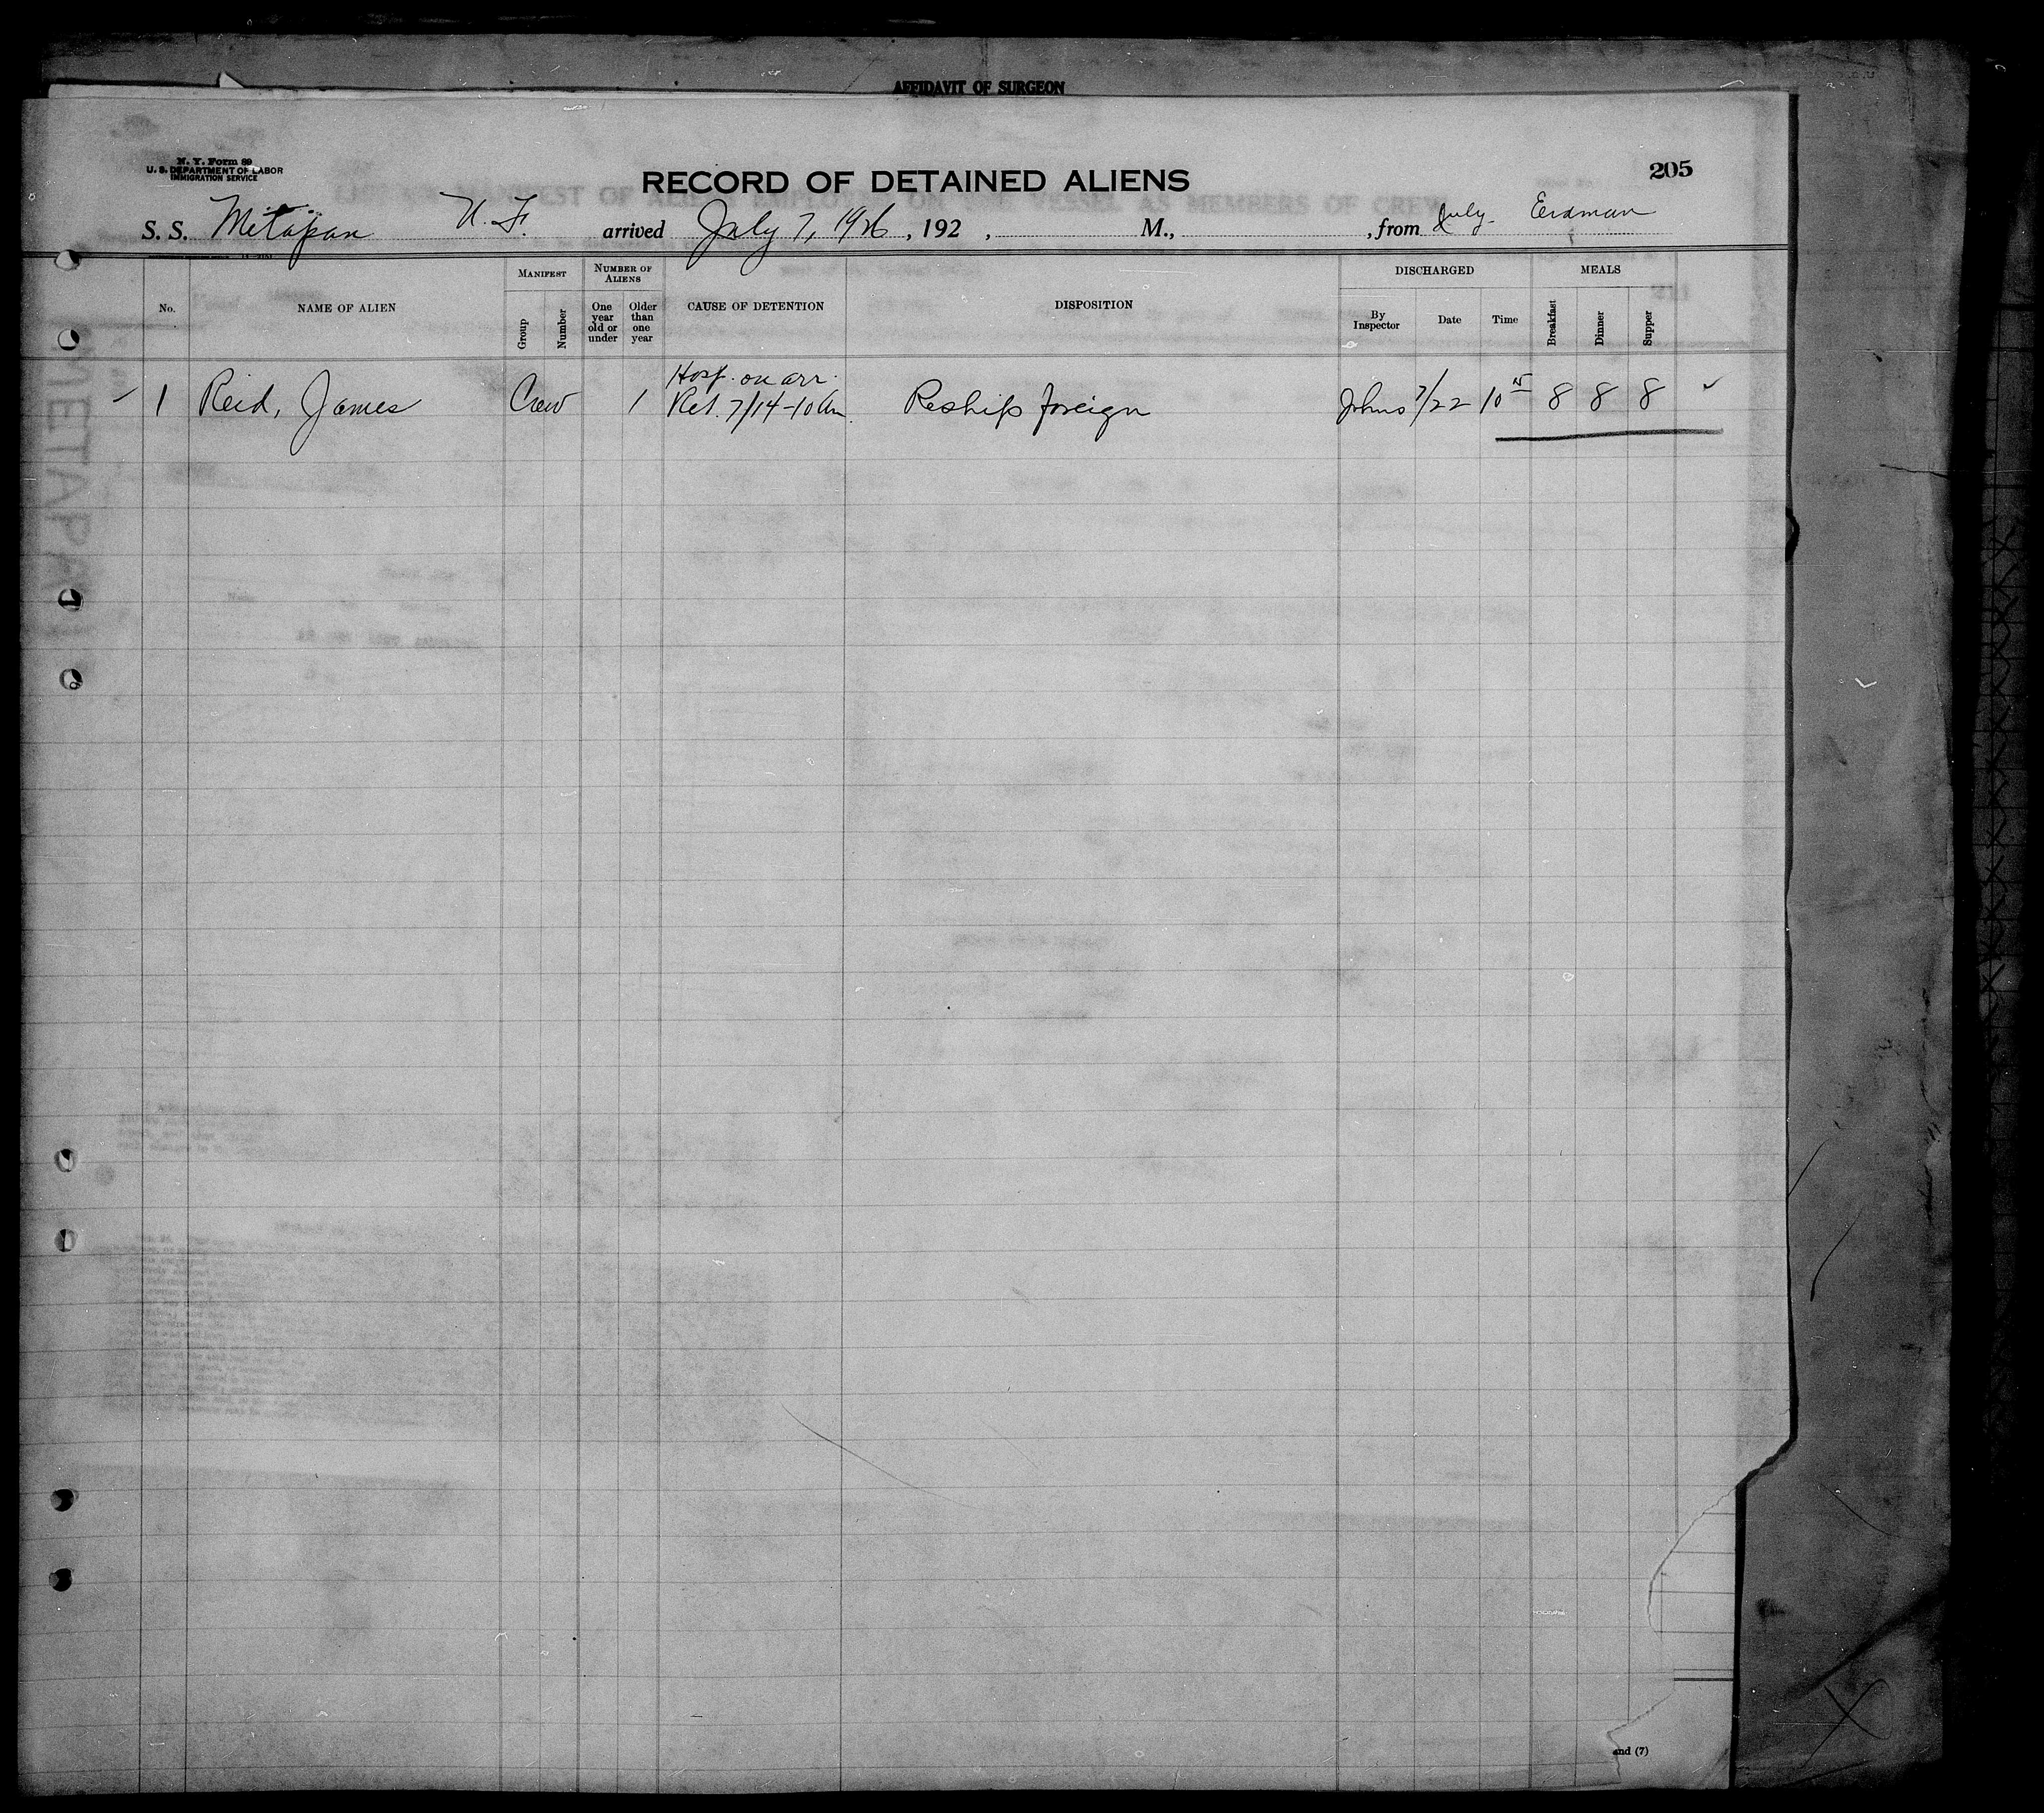 AFFIDAVIT OF SURGEON
N. Y. Form 89
U. S. DEPARTMENT OF LABOR
IMMIGRATION SERVICE
RECORD OF DETAINED ALIENS
205
S. S. Metapan U. F. arrived July 7, 1926, 192 , M., , from July. Erdman
No. NAME OF ALIEN MANIFEST Group Number NUMBER OF ALIENS One year old or under Older than one year CAUSE OF DETENTION DISPOSITION DISCHARGED By Inspector Date Time MEALS Breakfast Dinner Supper
Hosp. on arr.
1 Reid, James Crew 1 Ret. 7/14-10 am Reship foreign Johns 7/22 10 8 8 8
and (7)